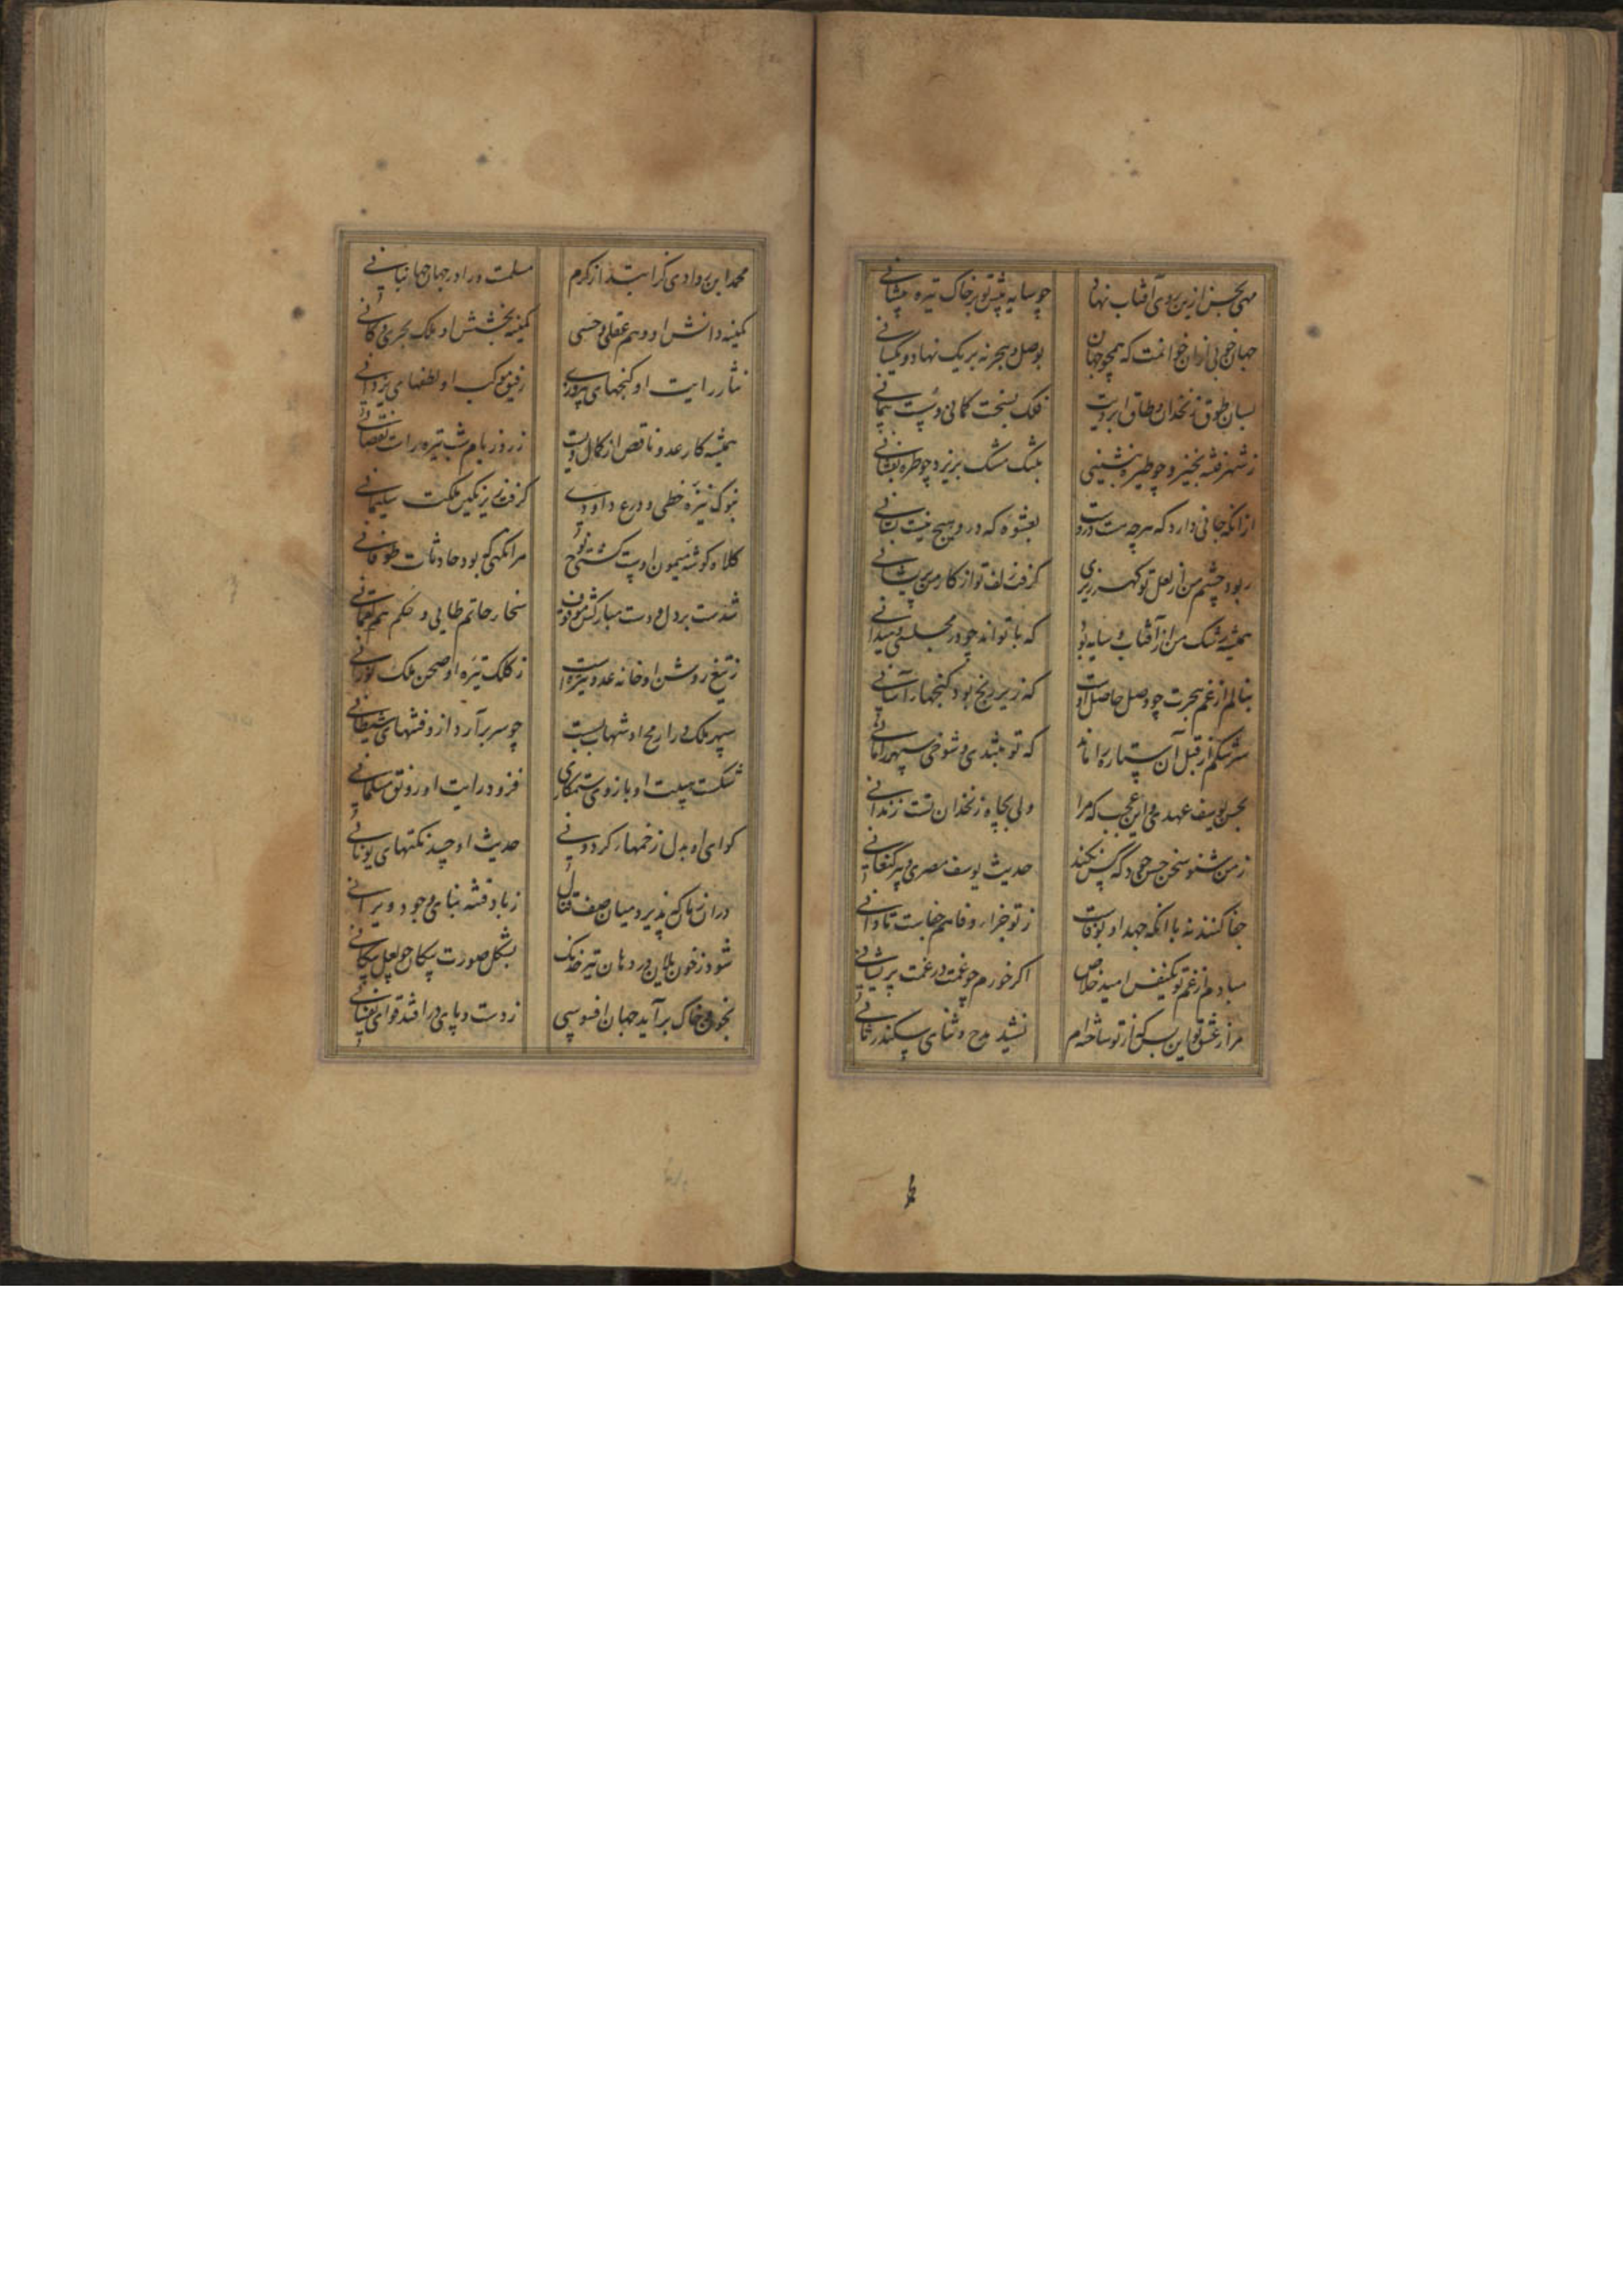 مهی بحسن ازین روی آفتاب نهاد چو سایه پیش تو بر خاک تیره پیشانی
جهان خوبی ازان خوانمت که همچو جهان بوصل و هجر نه بر یک نهاد و یکسانی
بسان طوق زنخدان و طاق ابرویت فلک بسخت کمانی و سست پیمانی
ز شهر فتنه بخیزد چو طیره بنشینی بتنگ مشک بریزد چو طره بفشانی
ازانکه جانی دارد که هرچه هست دروست بعشوه که درو هیچ نیست بستانی
ربود چشم من از لعل تو گهرریزی گرفت زلف تو از کار من پریشانی
همیشه رشک من از آفتاب و سایه بود که با تواند چو در مجلسی و میدانی
بنالم از غم هجرت چو وصل حاصل اوست که زیر رنج بود گنجهاء آسانی
سرشکم از قبل آن ستاره را ماند که تو بتندی و شوخی سپهر را مانی
بحسن یوسف عهدی و این عجب که مرا دلی بچاه زنخدان تست زندانی
ز من شنو سخن حسن خود که کس نکند حدیث یوسف مصری چو پیر کنعانی
جفا کنند نه با آنکه عهد او بوفاست ز تو جزاء وفا هم جفاست تا دانی
مباد هم از غم تو یکنفس امید خلاص اگر خورم چو غمت در غمت پشیمانی
مرا ز عشق تو این بس که از تو ساخته‌ام نشید مدح و ثنای سکندر ثانی
محمد ابن که ابتدا از کرم مسلمست ورا در جهان جهانبانی
کمینه دانش او وهم عقلی و حسی کمینه بخشش او ملک بحری و کانی
نثار رایت او گنجهای پرویزی رفیق موکب او لطفهای یزدانی
همیشه کار عدو ناقص از کمال ویست ز روز بام شب تیره راست نقصانی
بنوک نیزه خطی و درع داودی گرفت زیر نگین ملکت سلیمانی
کلاه گوشه میمون اوست کشتی نوح هر آنگهی که بود حادثات طوفانی
شدست بر دل و دست مبارکش موقوف سخاء حاتم طایی و حکم لقمانی
ز تیغ روشن او خانه عدو تیره است ز کلک تیره او صحن ملک نورانی
سپهر ملک ورا رمح او شهاب بسست چو سر برآرد ازو فتنهای شیطانی
شکست هیبت او بازوی ستمکاری فزود رایت او رونق مسلمانی
گوای او بدل زخمهاء گردونی حدیث او چو نکتهای یونانی
دران زمان که پذیرد میان صف قتال ز باد فتنه بنای وجود ویرانی
شود ز خون یلان در دهان تیر خدنگ بشکل صورت پیکان چو لعل پیکانی
بخون و خاک برآید جهان افسوسی ز دست و پای درافتد قوای نفسانی